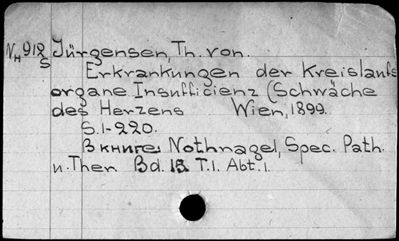 NH 918 Jürgensen, Th. von.
S Erkrankungen der Kreislaufs
organe Insufficienz (Schwäche
des Herzens Wien, 1899.
S. 1-220.
В книге: Nothnagel, Spec. Path.
u. Ther. Bd. 15. T. 1. Abt. 1.